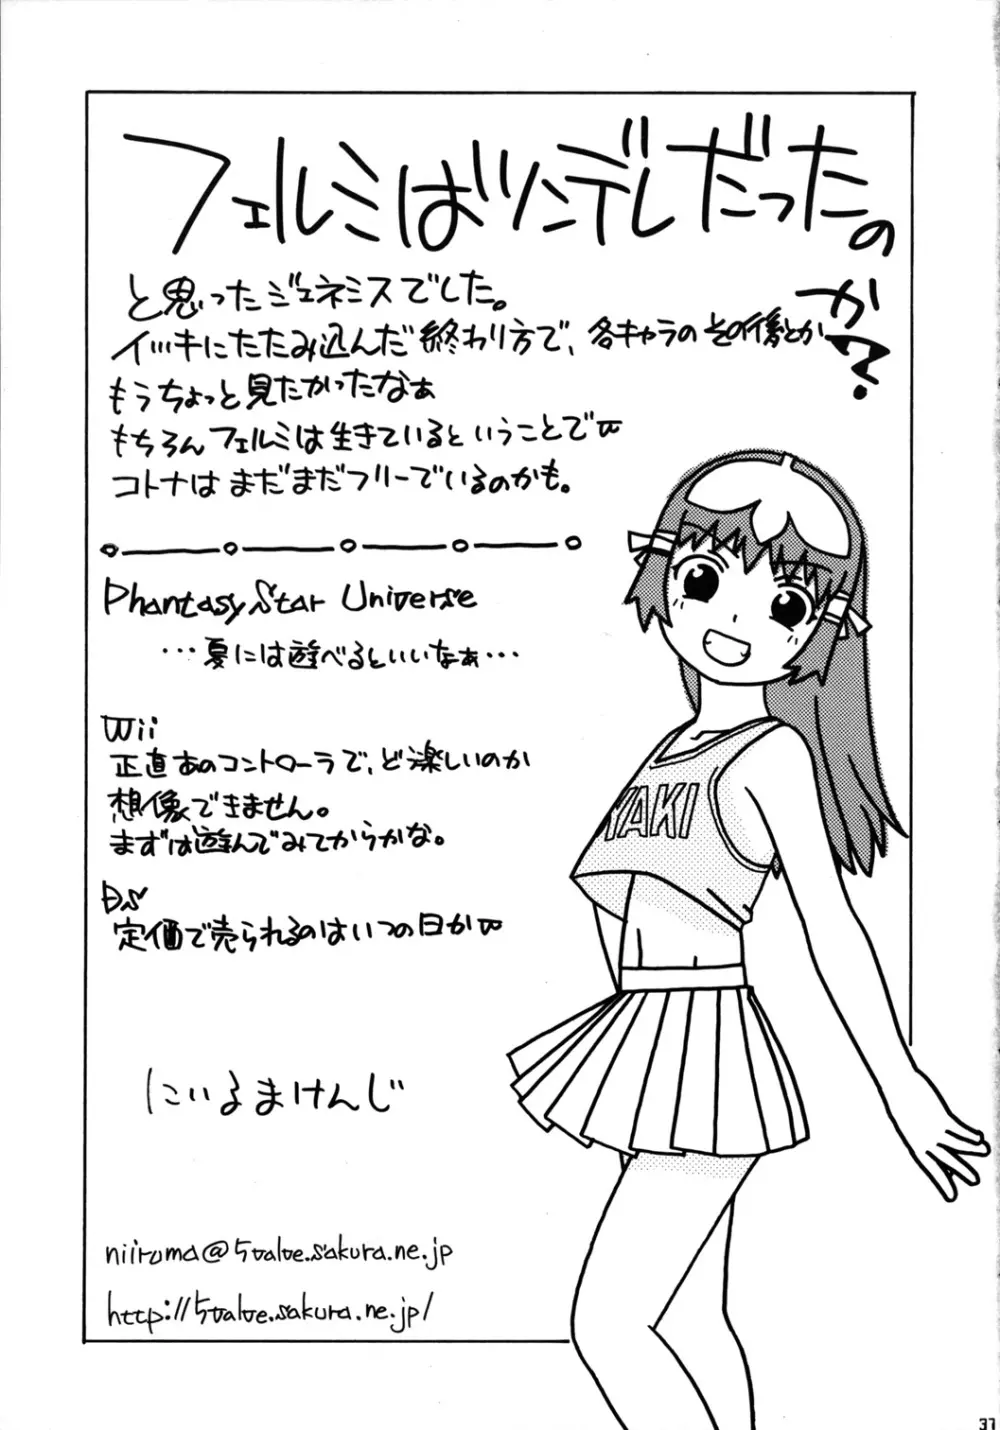 フェルミはツンデレだったの
か?
と思ったジェネミスでした。
イッキにたたみ込んだ終わり方で、各キャラのその後とか
もうちょっと見たかったなぁ
もちろんフェルミは生きているということでw
コトナはまだまだフリーでいるのかも。
Phantasy Star Universe
･･･夏には遊べるといいなぁ･･･
Wii
正直あのコントローラで、ど楽しいのか
想像できません。
まずは遊んでみてからかな。
DS
定価で売られるのはいつの日かw
にいるまけんじ
niiruma@5valve.sakura.ne.jp
http://5valve.sakura.ne.jp/
YAKI
37